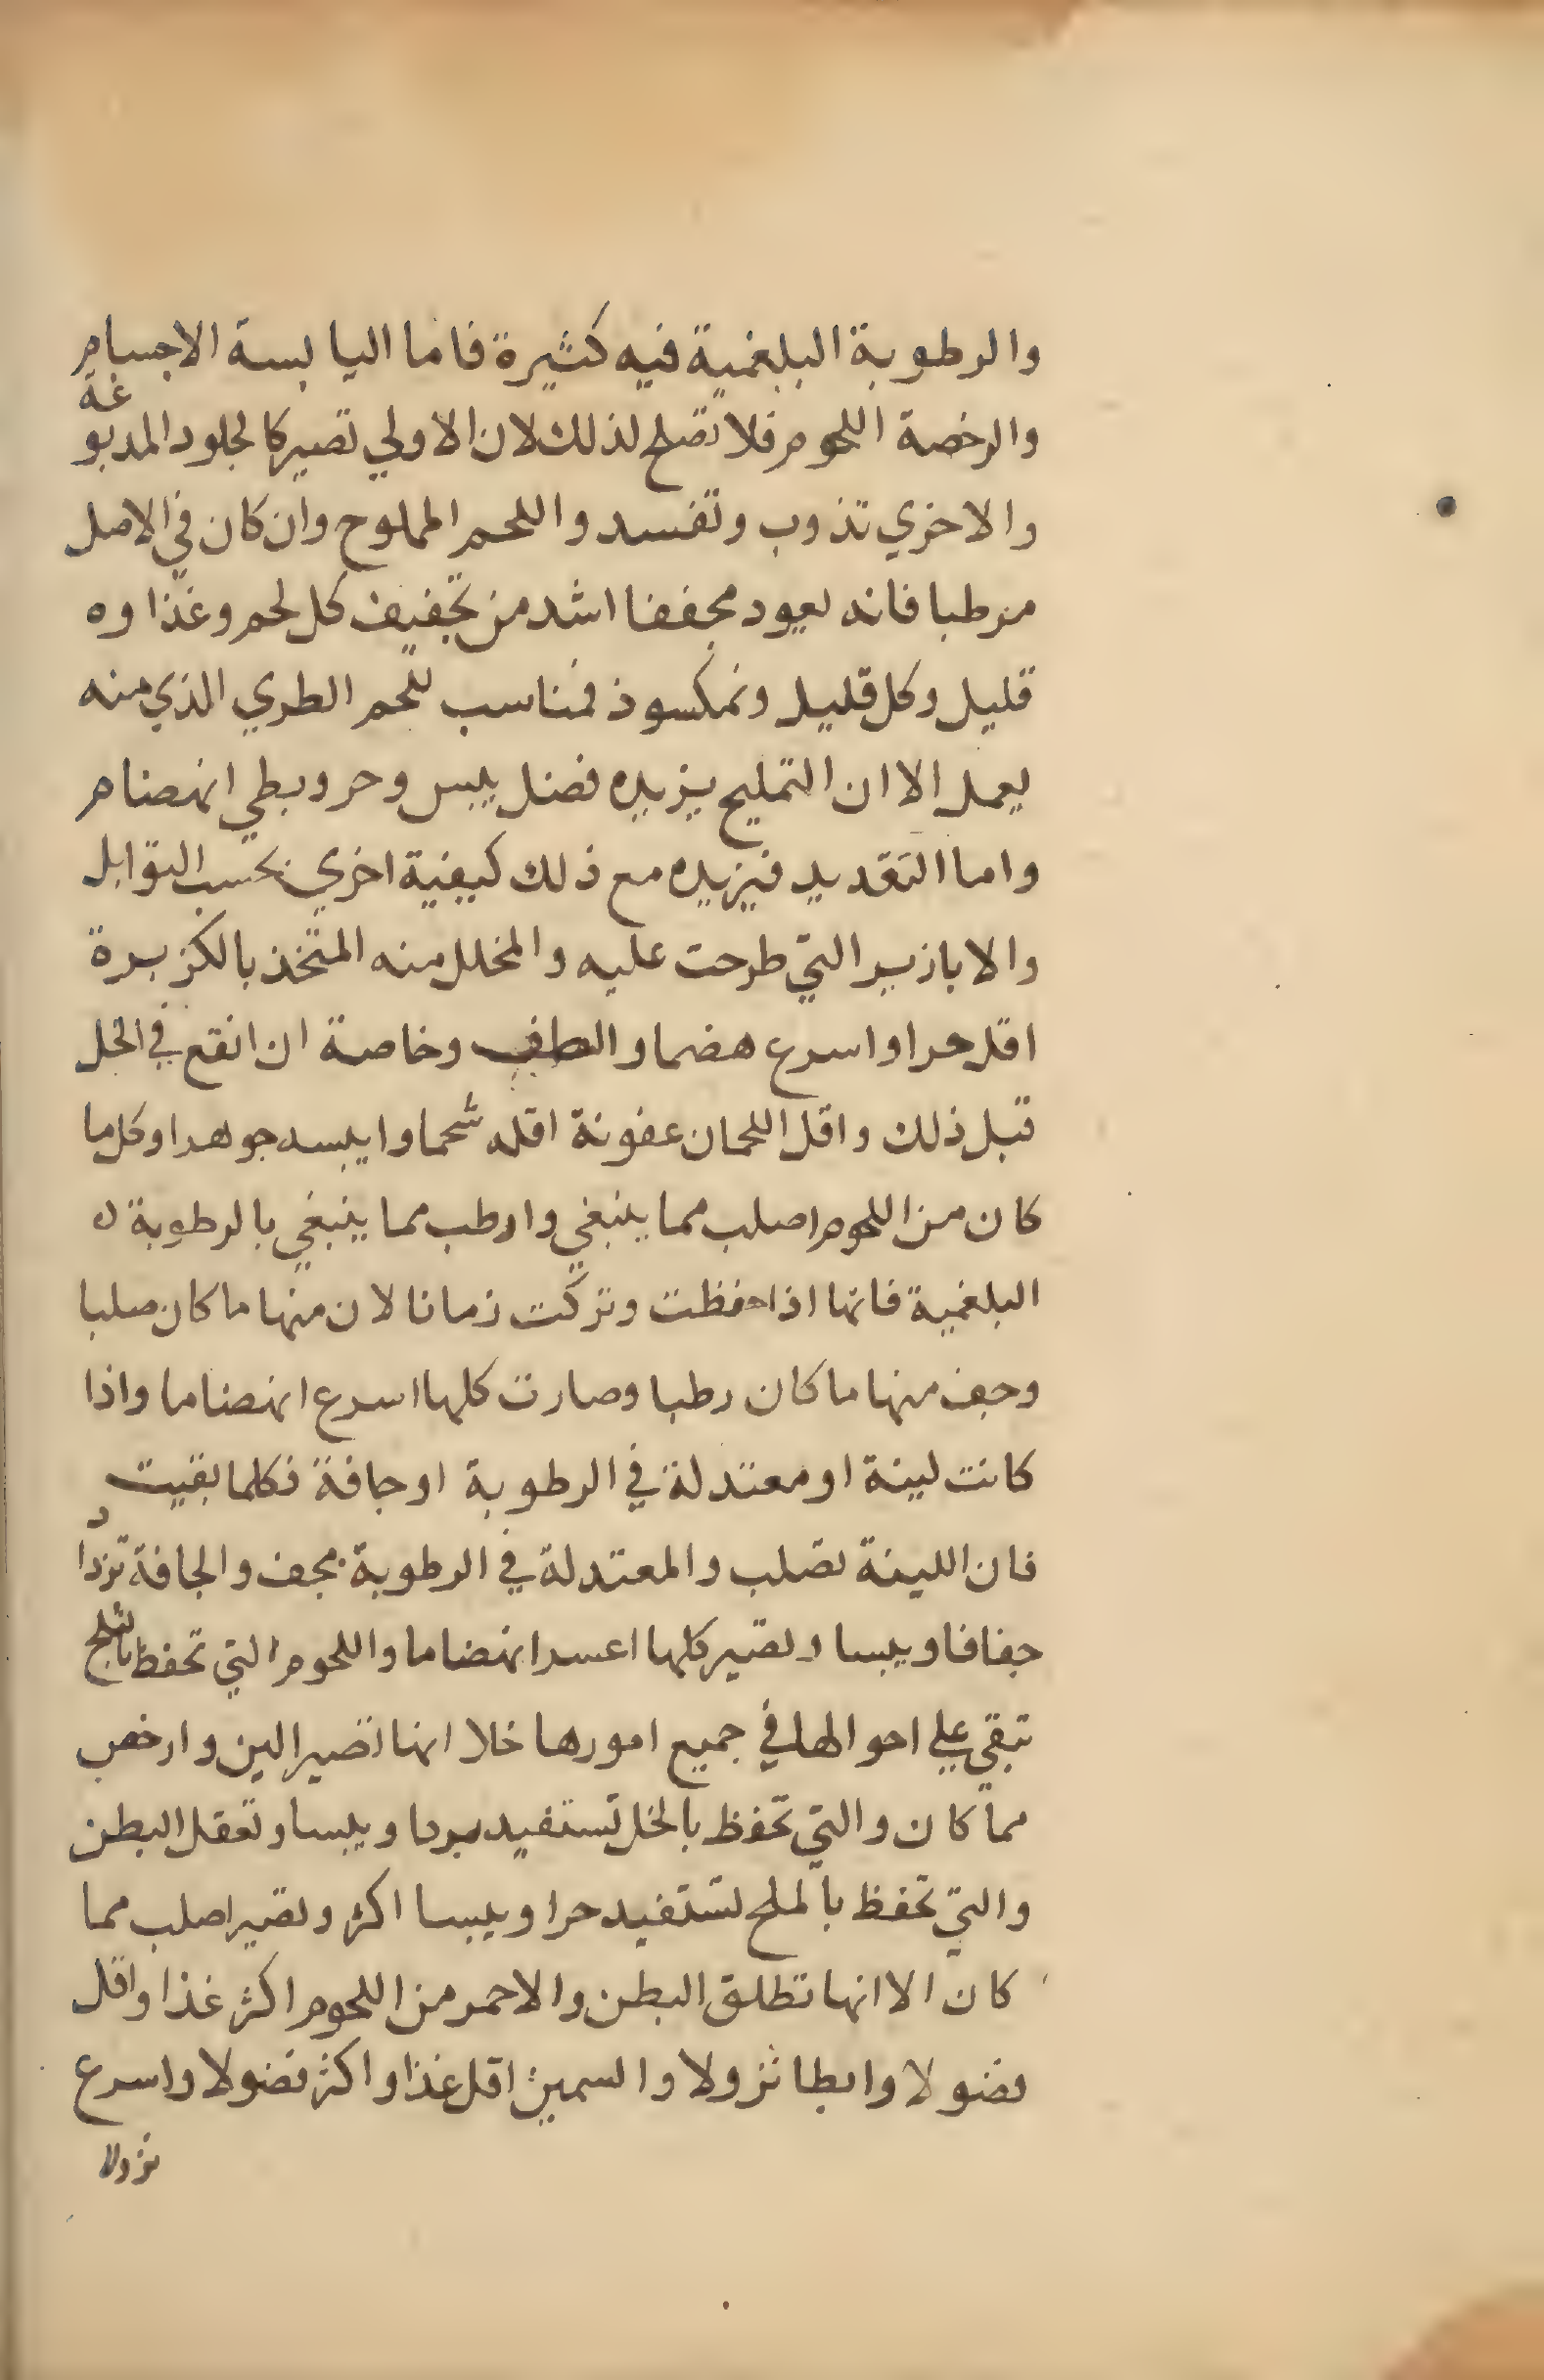 والرطوبة البلغمية فيه كثيرة فاما اليابسة الاجسام
والرخصة اللحوم فلا تصلح لذلك لان الاولي تصير كالجلود المدبوغة
والاخري تذوب وتفسد واللحم المملوح وان كان في الاصل
مرطبا فانه يعود مجففا اشد من تجفيف كل لحم وغذاوه
قليل وكل قليل ونمكسوذ فمناسب للحم الطري الذي منه
يعمل الا ان التمليح يزيده فضل يبس وحر وبطي انهضام
واما التقديد فيزيده مع ذلك كيفية اخري بحسب التوابل
والابازير التي طرحت عليه والمخلل منه المتخذ بالكزبرة
اقل حرا واسرع هضما والطف وخاصة ان انقع في الخل
قبل ذلك واقل اللحمان عفونة اقله شحما وايبسه جوهرا وكل ما
كان من اللحوم اصلب مما ينبغي وارطب مما ينبغي بالرطوبة
البلغمية فانها اذا حفظت وتركت زمانا لان منها ما كان صلبا
وجف منها ما كان رطبا وصارت كلها اسرع انهضاما واذا
كانت لينة او معتدلة في الرطوبة او جافة فكلما بقيت
فان اللينة تصلب والمعتدلة في الرطوبة تجف والجافة تزداد
جفافا ويبسا وتصير كلها اعسر انهضاما واللحوم التي تحفظ بالثلج
تبقي علي احوالها في جميع امورها خلا انها تصير الين وارخص
مما كان والتي تحفظ بالخل تستفيد بردا ويبسا وتعقل البطن
والتي تحفظ بالملح تستفيد حرا ويبسا اكثر وتصير اصلب مما
كان الا انها تطلق البطن والاحمر من اللحوم اكثر غذا واقل
فضولا وابطا نزولا والسمين اقل غذا واكثر فضولا واسرع
نزولا